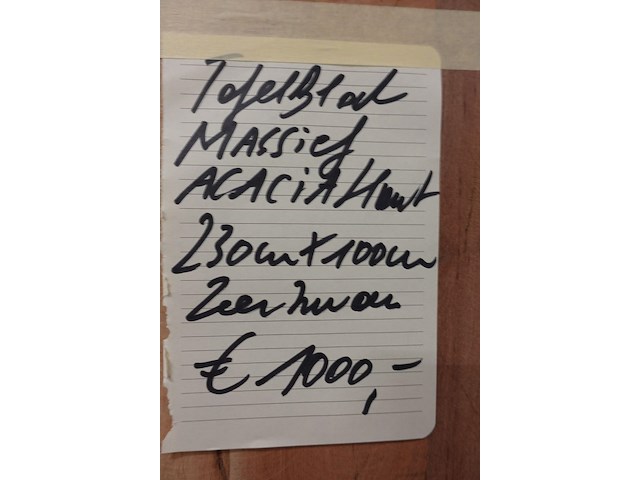 TafelBlad
MASSief
ACACIA Hout
230cm X 100cm
Zeer zwaar
€ 1000,-